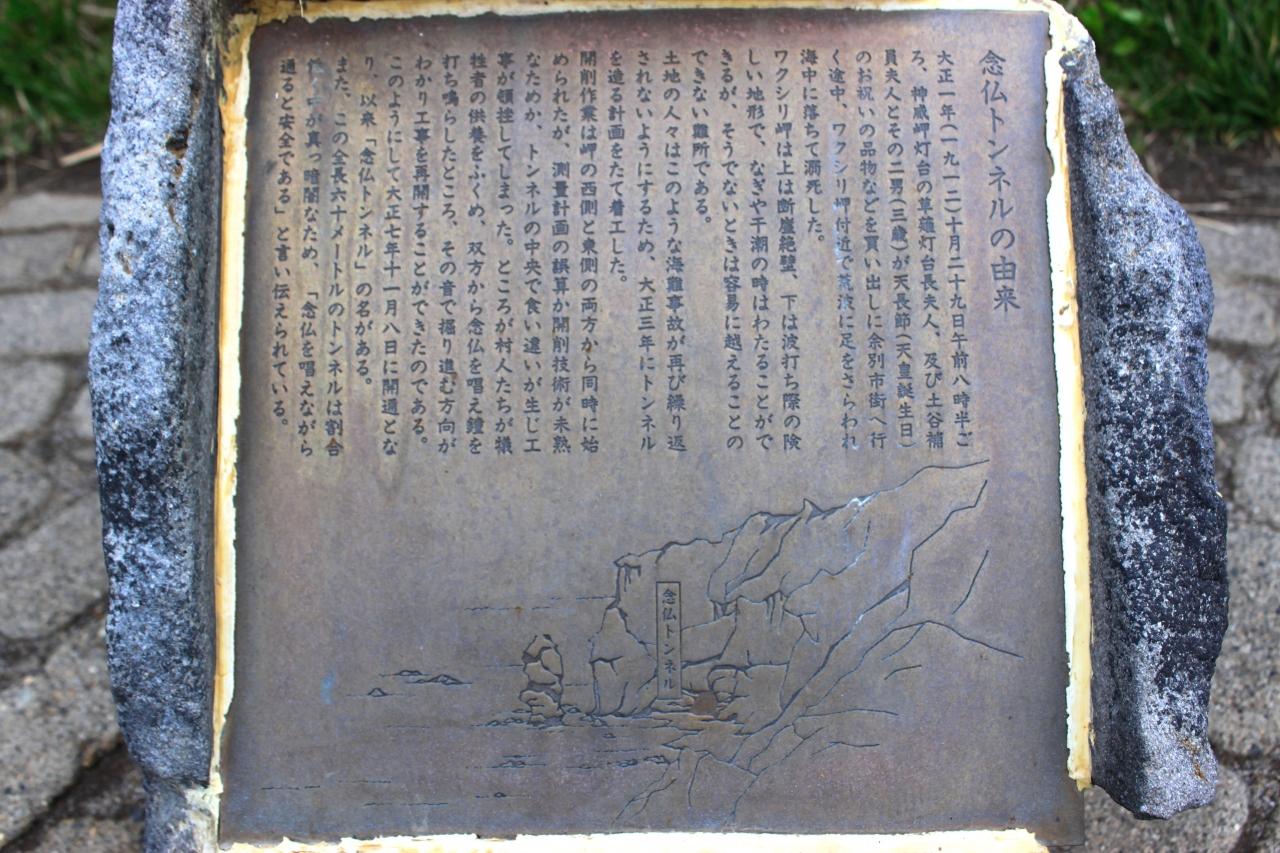 念仏トンネルの由来
大正一年(一九一二)十月二十九日午前八時半ご
ろ、神威岬灯台の草薙灯台長夫人、及び土谷補
員夫人とその二男(三歳)が天長節(天皇誕生日)
のお祝いの品物などを買い出しに余別市街へ行
く途中、ワクシリ岬付近で荒波に足をさらわれ
海中に落ちて溺死した。
ワクシリ岬は上は断崖絶壁、下は波打ち際の険
しい地形で、なぎや干潮の時はわたることがで
きるが、そうでないときは容易に越えることの
できない難所である。
土地の人々はこのような海難事故が再び繰り返
されないようにするため、大正三年にトンネル
を造る計画をたて着工した。
開削作業は岬の西側と東側の両方から同時に始
められたが、測量計画の誤算か開削技術が未熟
なためか、トンネルの中央で食い違いが生じ工
事が頓挫してしまった。ところが村人たちが犠
牲者の供養をふくめ、双方から念仏を唱え鐘を
打ち鳴らしたところ、その音で掘り進む方向が
わかり工事を再開することができたのである。
このようにして大正七年十一月八日に開通とな
り、以来「念仏トンネル」の名がある。
また、この全長六十メートルのトンネルは割合
中が真っ暗闇なため、「念仏を唱えながら
通ると安全である」と言い伝えられている。
念仏トンネル